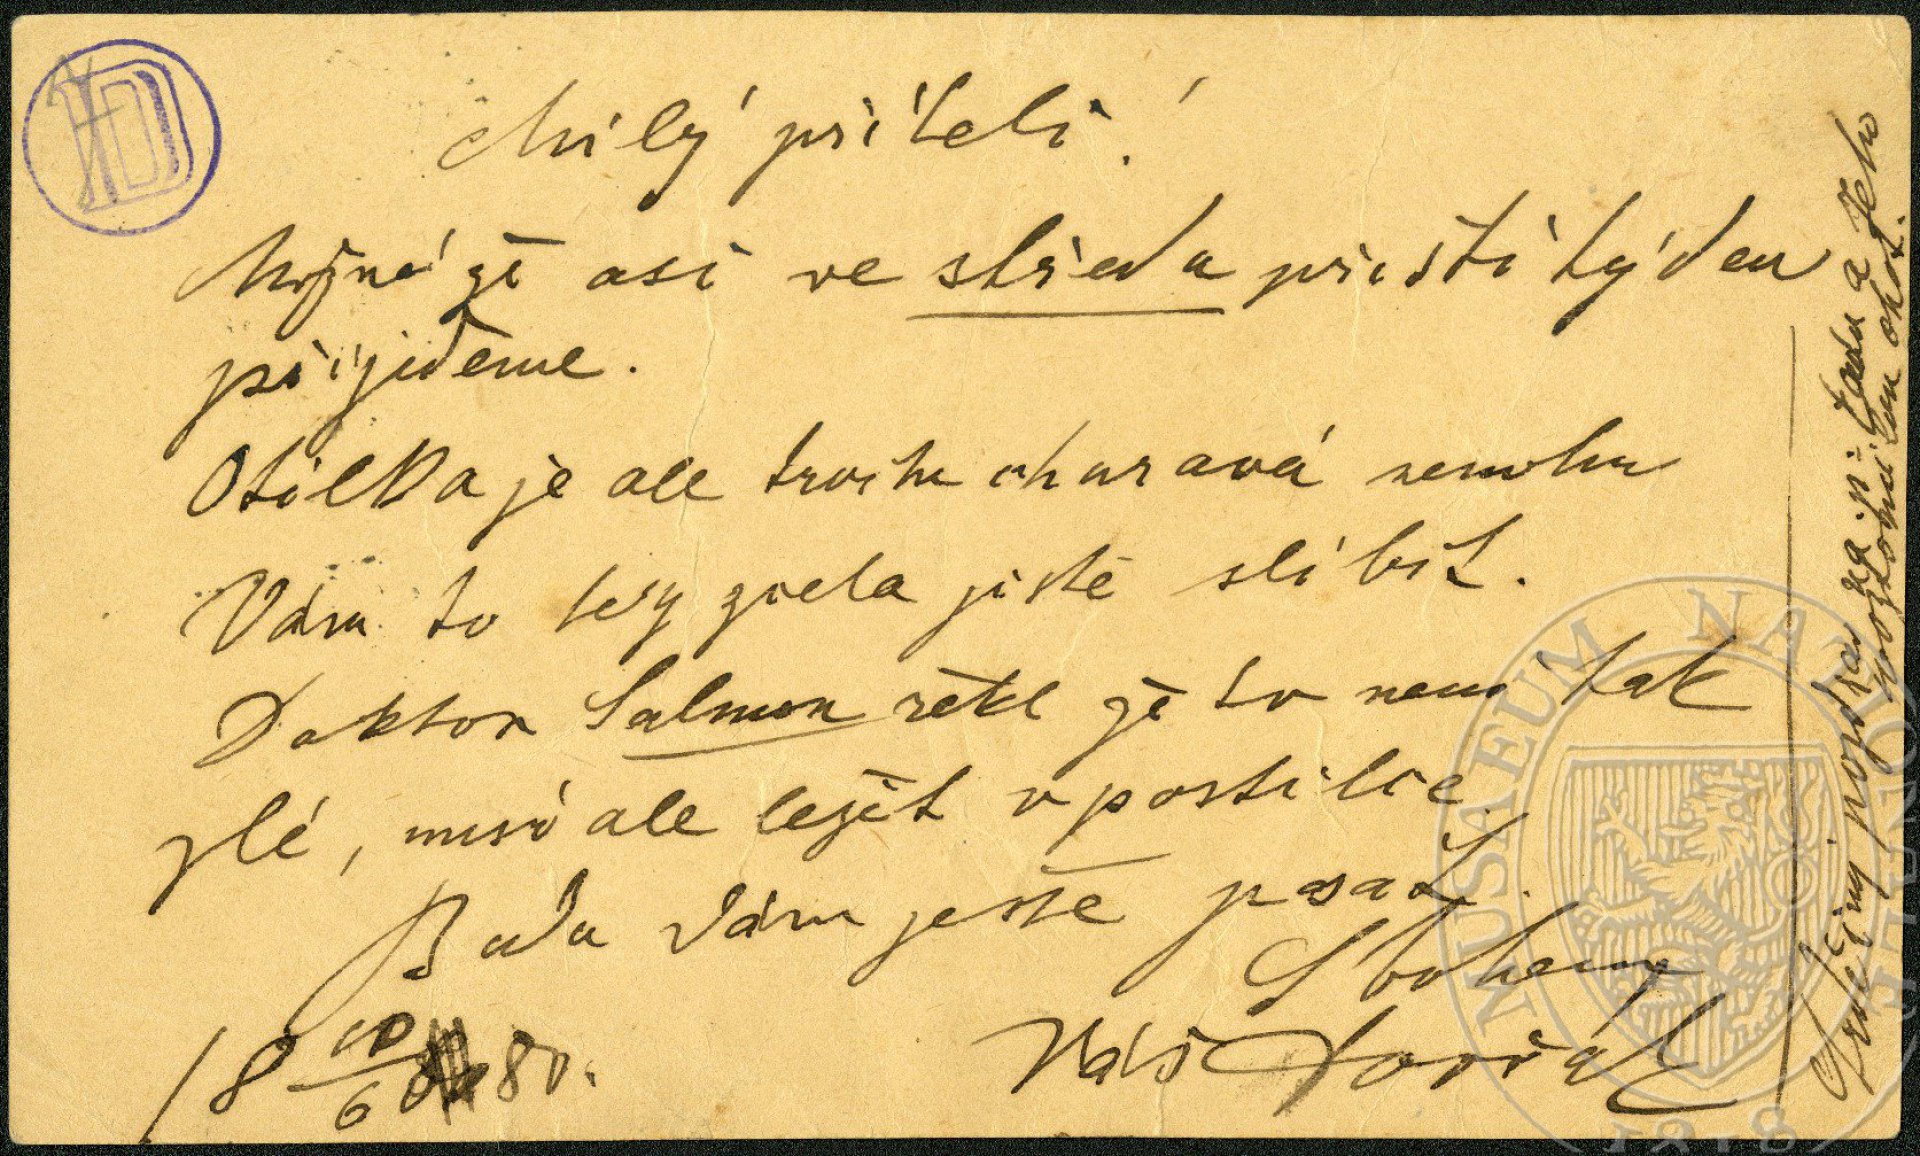 Milý příteli!
Možná že asi ve středu příští týden
přijedeme.
Otilka je ale trochu churavá nemohu
Vám to tedy zcela jistě slíbit.
Doktor Salmon řekl že to není tak
zlé, musí ale ležet v postilce.
Budu Vám ještě psat.
S bohem
Váš Dvořák
18 10/6 80.
Srdečný pozdrav na p: faráře a Jeho
MUSAEUM NATIONALE
1818